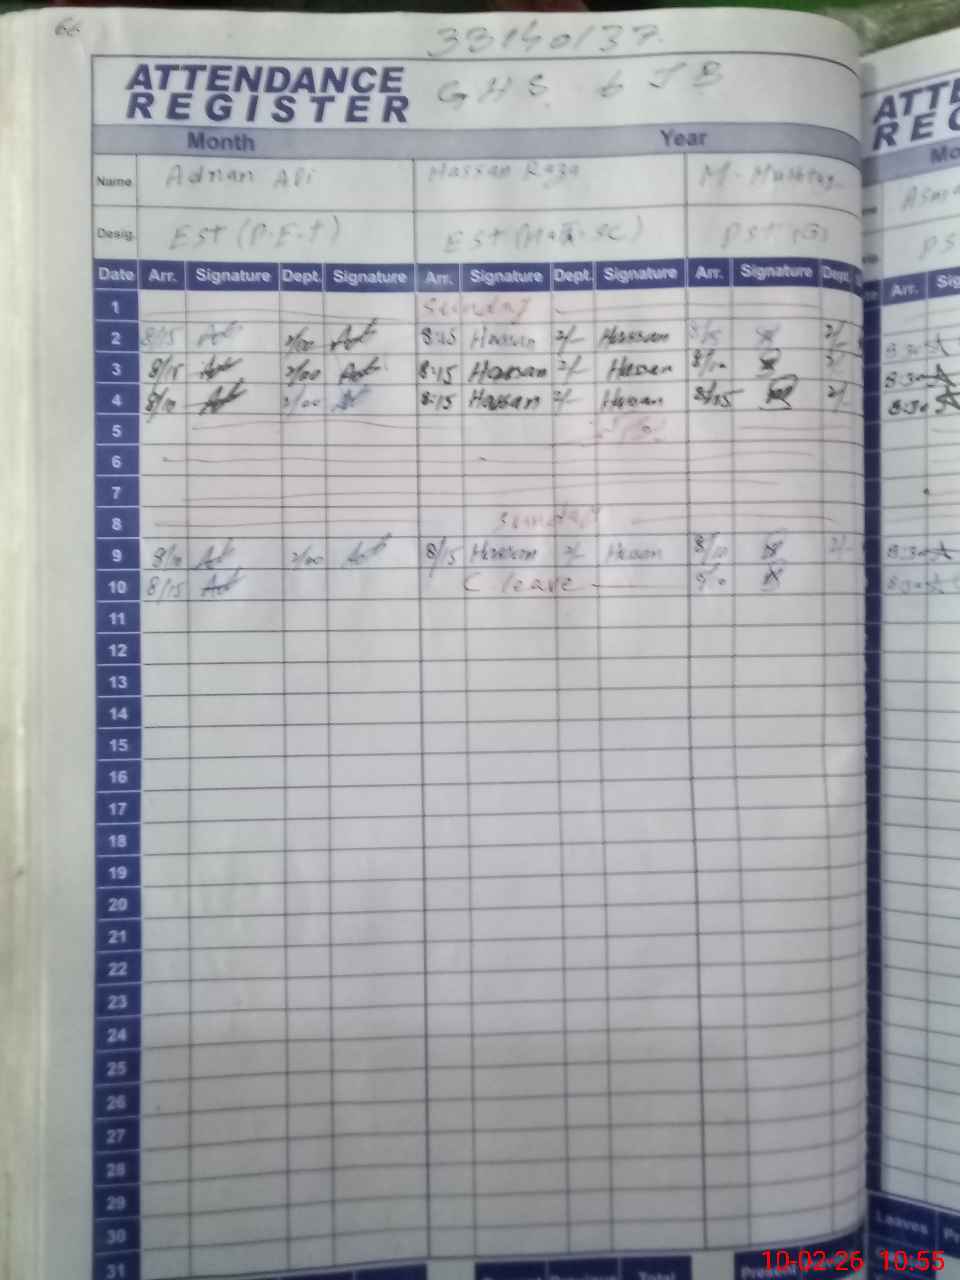 66
33140137
ATTENDANCE REGISTER GHS 6 JB
Month Year
Name Adnan Ali Hassan Raza M. Mushtaq
Desig. EST (P.E.T) EST (Mat-SC) PST (G)
Date Arr. Signature Dept. Signature Arr. Signature Dept. Signature Arr. Signature Dept.
1 Sunday
2 8/15 2/00 8:15 Hassan 2/- Hassan 8/15 2/-
3 8/15 2/00 8:15 Hassan 2/- Hassan 8/10 2/
4 8/10 2/00 8:15 Hassan 2/- Hassan 2/-
5
6
7
8 Sunday
9 8/10 2/00 8/15 Hassan 2/- Hassan 8/10 2/-
10 8/15 C. leave
11
12
13
14
15
16
17
18
19
20
21
22
23
24
25
26
27
28
29
30
31
ATTE
REG
Mo
PS
Arr. Sig
8:30
8:30
8:30
8:30
8:30
Leaves
Total
10-02-26 10:55